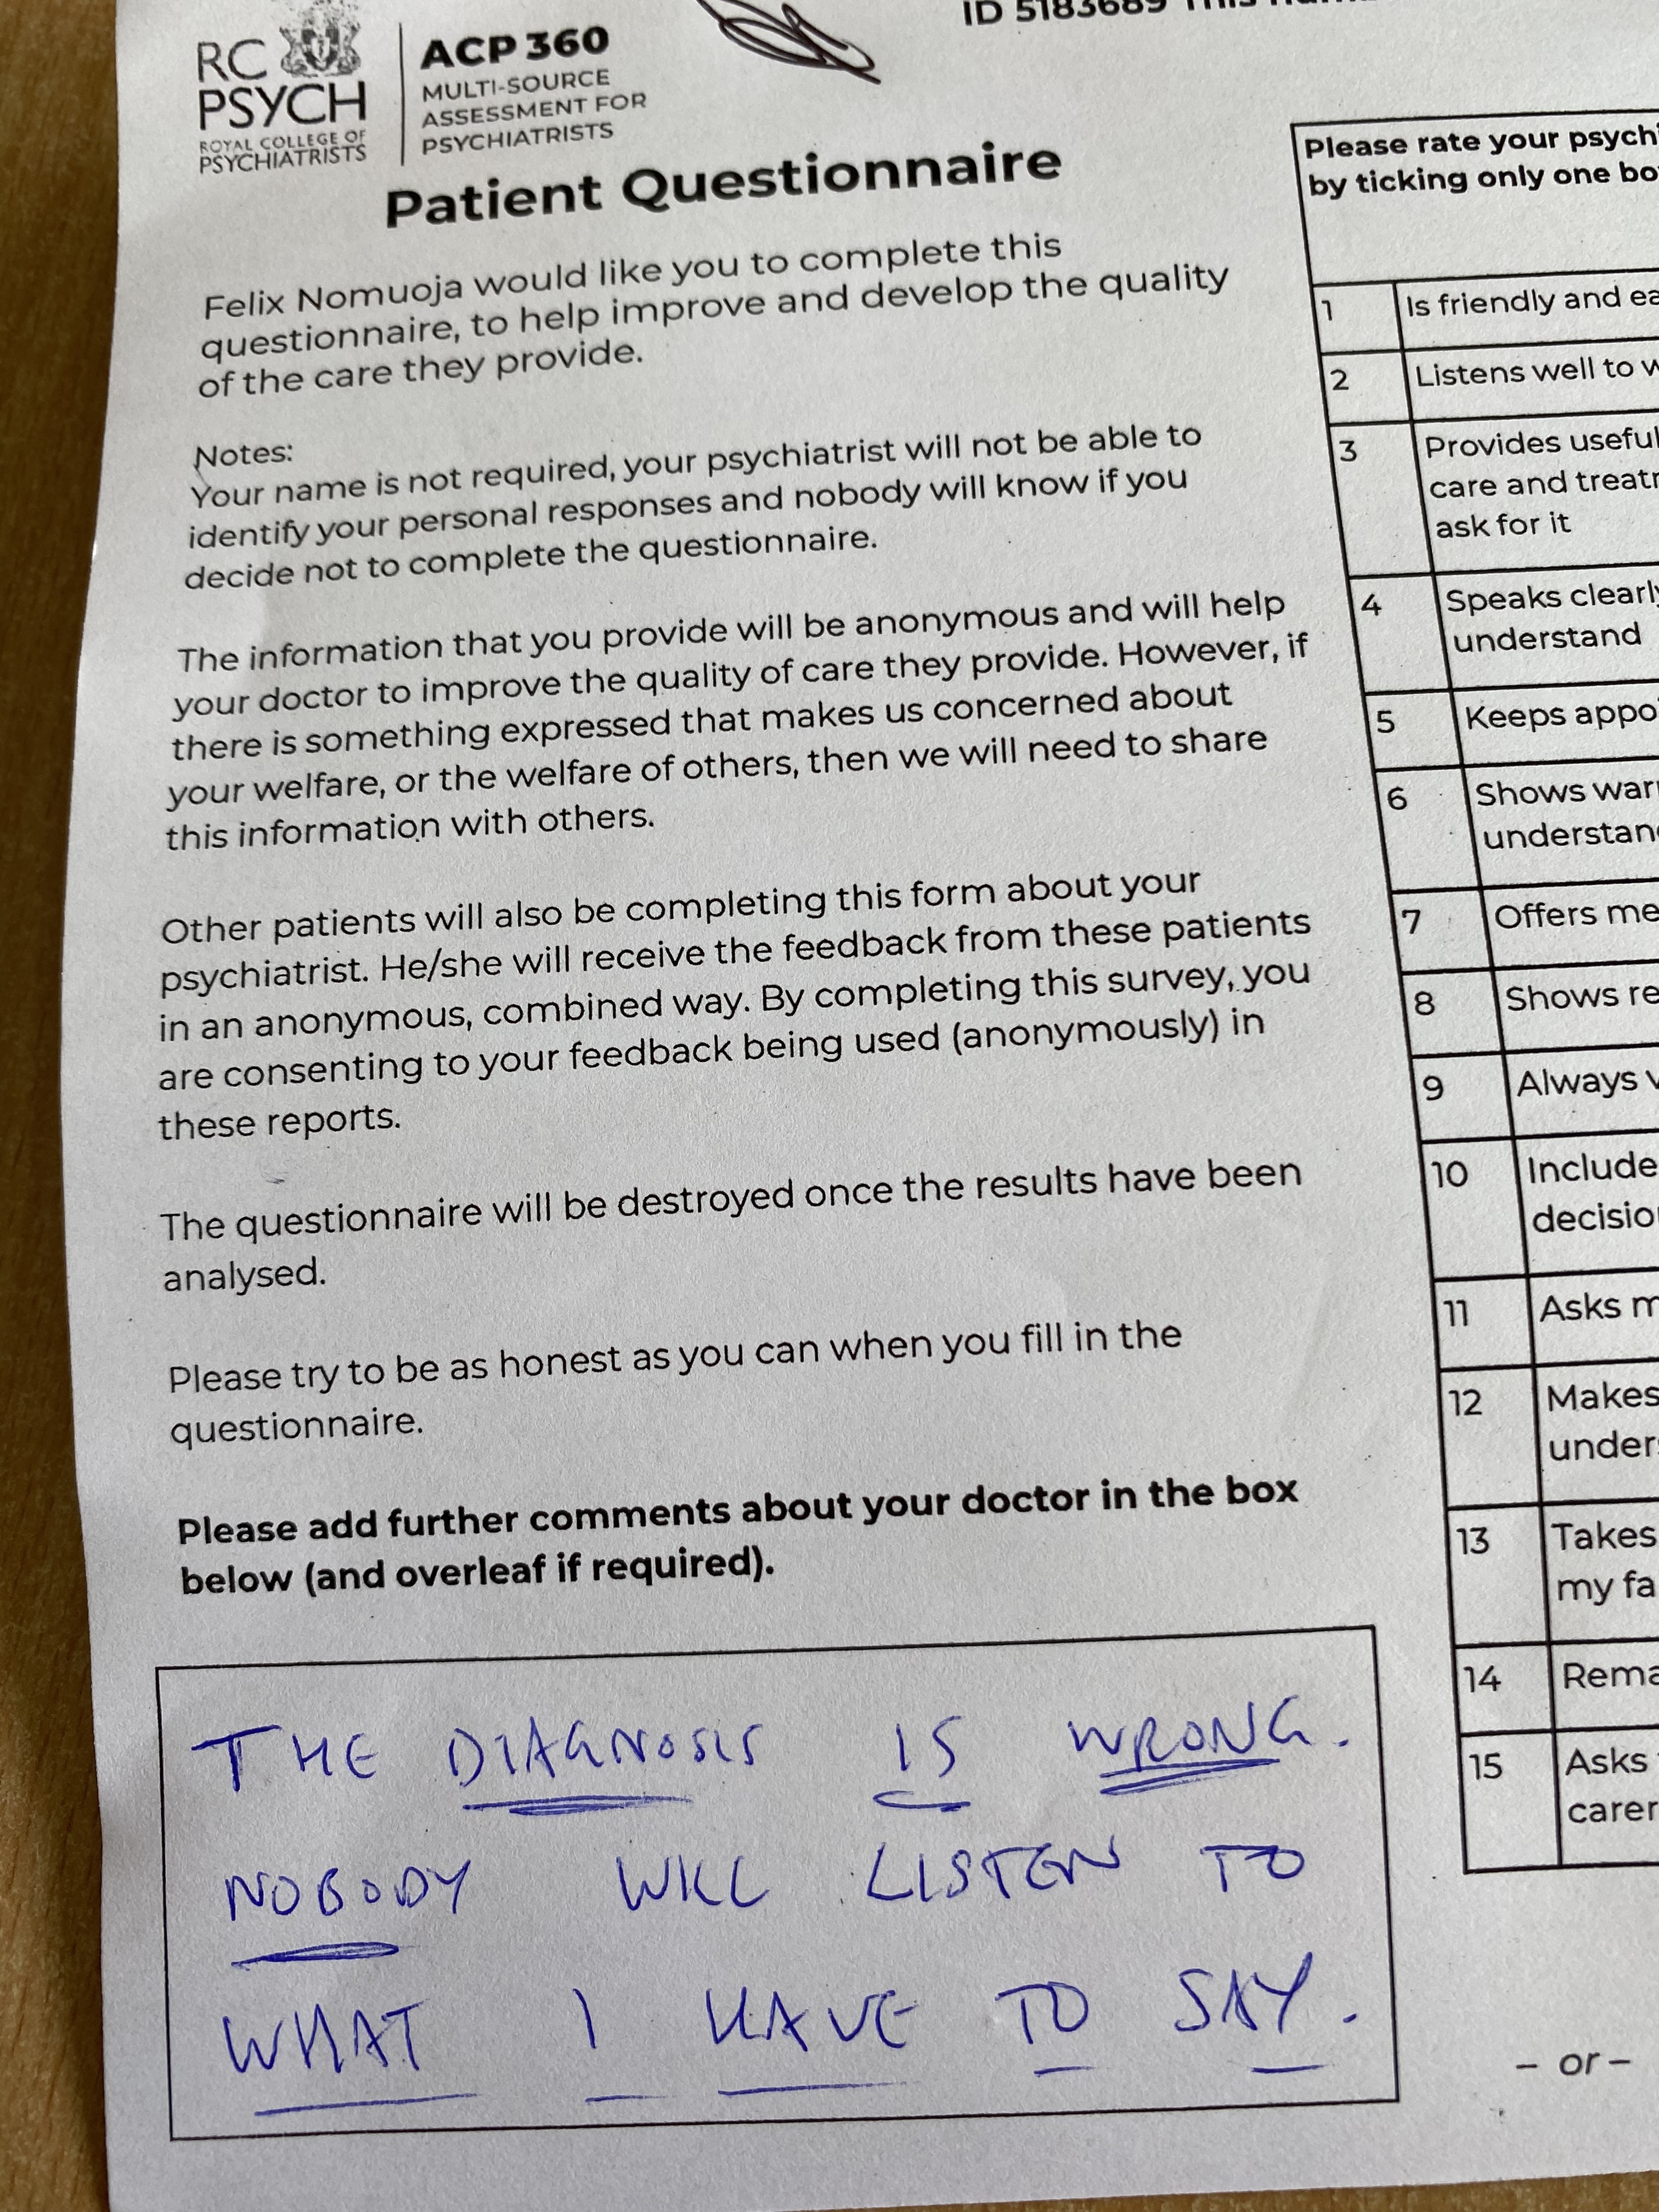 RC
PSYCH
ROYAL COLLEGE OF
PSYCHIATRISTS
ACP 360
MULTI-SOURCE
ASSESSMENT FOR
PSYCHIATRISTS
ID 5183689 This
Patient Questionnaire
Felix Nomuoja would like you to complete this
questionnaire, to help improve and develop the quality
of the care they provide.
Notes:
Your name is not required, your psychiatrist will not be able to
identify your personal responses and nobody will know if you
decide not to complete the questionnaire.
The information that you provide will be anonymous and will help
your doctor to improve the quality of care they provide. However, if
there is something expressed that makes us concerned about
your welfare, or the welfare of others, then we will need to share
this information with others.
Other patients will also be completing this form about your
psychiatrist. He/she will receive the feedback from these patients
in an anonymous, combined way. By completing this survey, you
are consenting to your feedback being used (anonymously) in
these reports.
The questionnaire will be destroyed once the results have been
analysed.
Please try to be as honest as you can when you fill in the
questionnaire.
Please add further comments about your doctor in the box
below (and overleaf if required).
THE DIAGNOSIS IS WRONG.
NOBODY WILL LISTEN TO
WHAT I HAVE TO SAY.
Please rate your psychi
by ticking only one bo
1 Is friendly and ea
2 Listens well to w
3 Provides useful
care and treatr
ask for it
4 Speaks clearly
understand
5 Keeps appoi
6 Shows war
understan
7 Offers me
8 Shows re
9 Always v
10 Include
decisio
11 Asks m
12 Makes
unders
13 Takes
my fa
14 Rema
15 Asks
carer
– or –